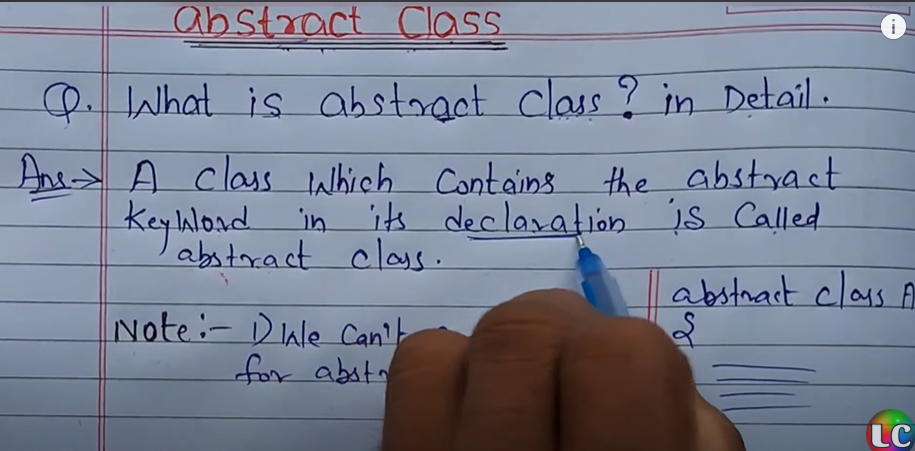 abstract Class
Q. What is abstract Class? in Detail.
Ans→ A Class Which Contains the abstract
KeyWord in its declaration is Called
abstract class.
abstract class A
{
Note:- 1) We Can't
for
LC